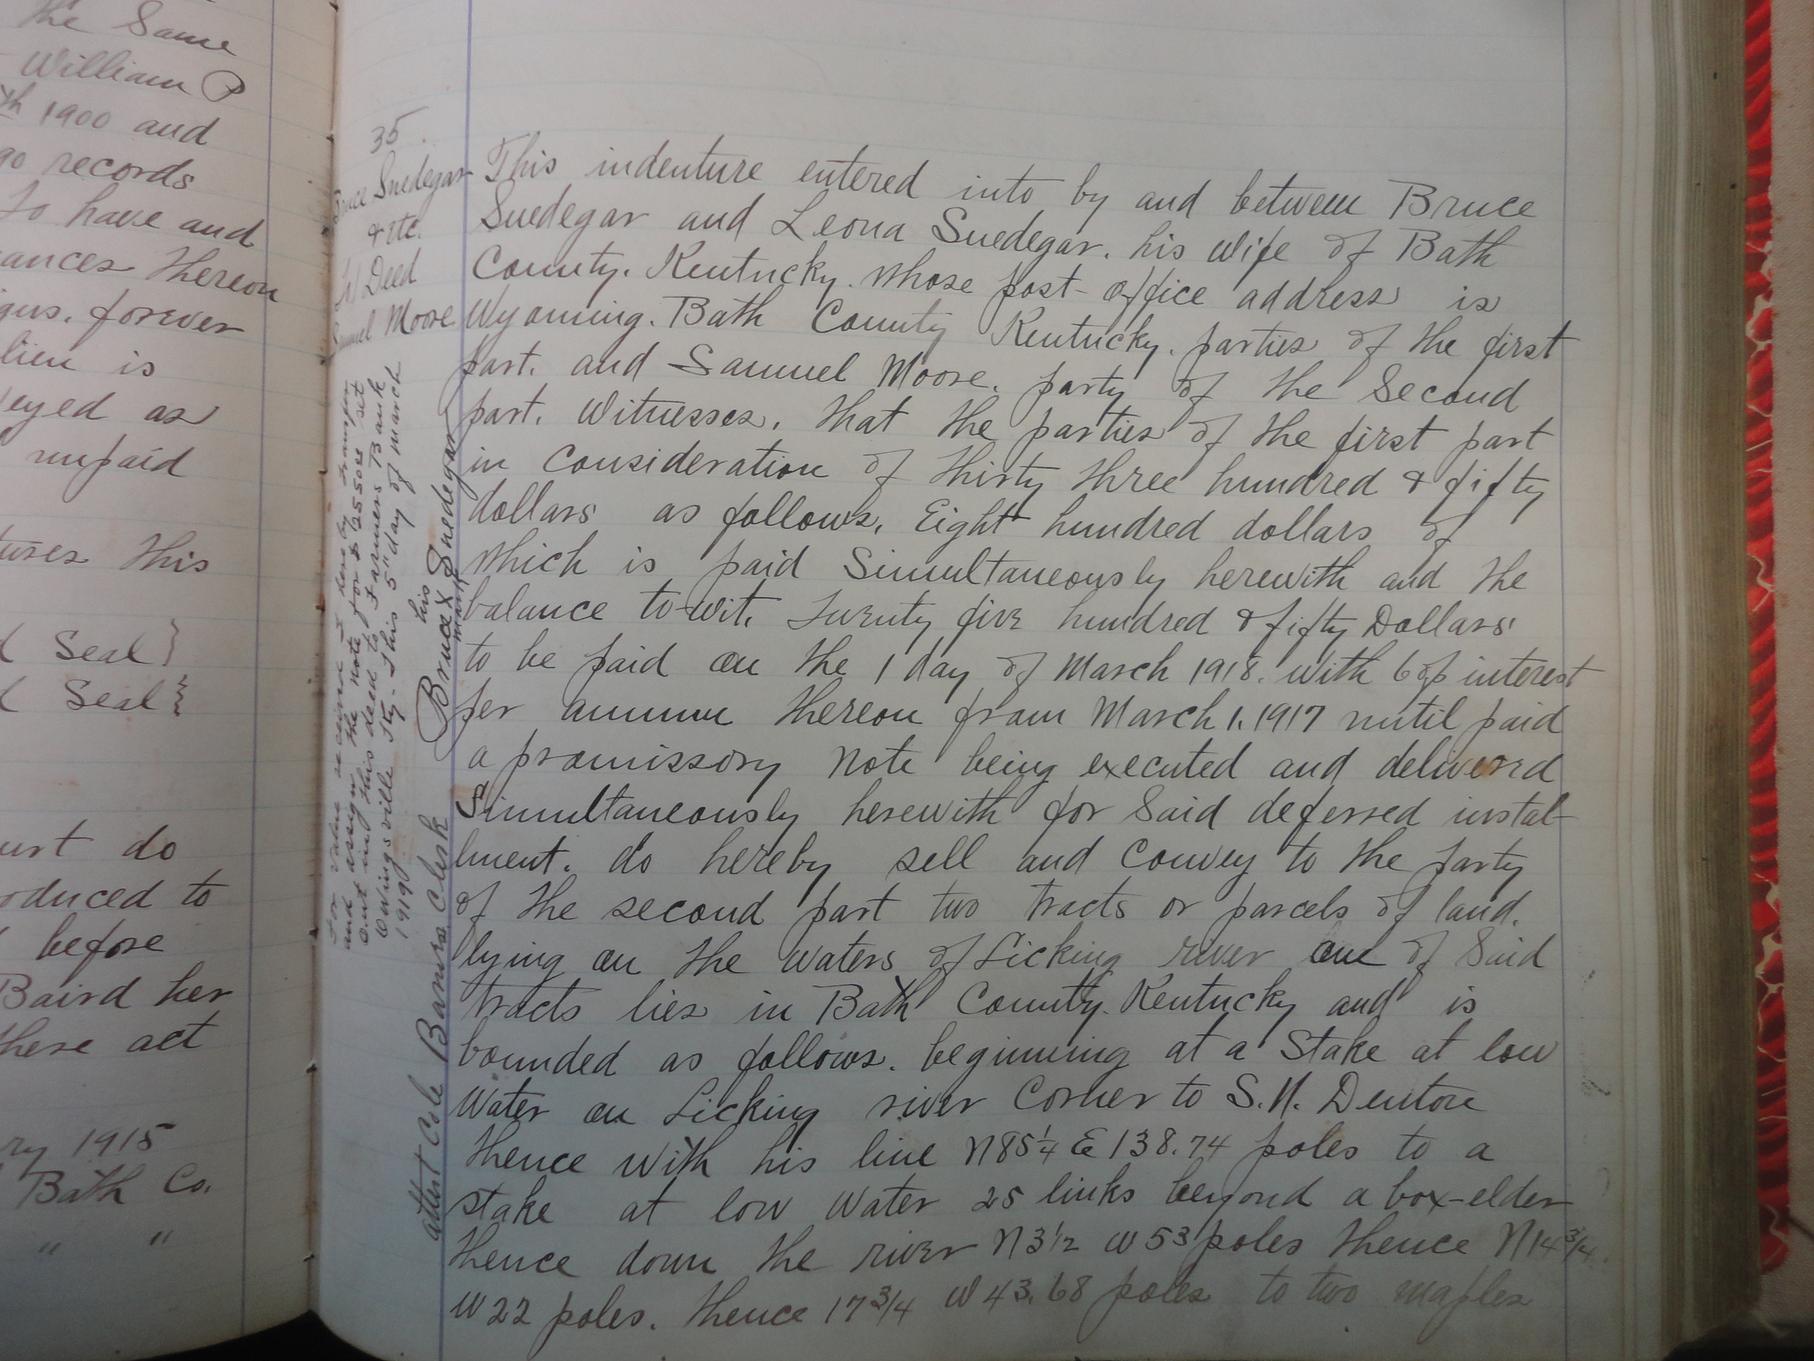 the Same
William P
th 1900 and
go records
To have and
ances thereon
gns. forever
lien is
eyed as
unpaid
tures this
Seal}
Seal}
urt do
oduced to
before
Baird her
these act
ry 1915
Bath Co.
" "
35.
Bruce Snedegar
& etc.
W Deed
Samuel Moore
For value received I hereby transfer
and assign the note for $2550.00 set
out in this deed to Farmers Bank
Owingsville Ky. This 5" day of march
1919
his
Bruce X Snedegar
mark
attest Cole Barnes Clerk
This indenture entered into by and between Bruce
Snedegar and Leona Snedegar. his wife of Bath
County. Kentucky. whose post-office address is
Wyoming. Bath County Kentucky. parties of the first
part. and Samuel Moore. party of the Second
part. Witnesses. that the parties of the first part
in consideration of thirty three hundred & fifty
dollars as follows. Eight hundred dollars of
which is paid Simultaneously herewith and the
balance to-wit. Twenty five hundred & fifty Dollars
to be paid on the 1 day of March 1918. with 6% interest
per annum thereon from March 1. 1917 until paid
a promissory note being executed and delivered
Simultaneously herewith for Said deferred instal-
lment. do hereby sell and convey to the party
of the second part two tracts or parcels of land.
lying on the waters of Licking river one of Said
tracts lies in Bath County. Kentucky and is
bounded as follows. beginning at a Stake at low
Water on Licking river Corner to S. N. Denton
thence with his line N85¼ E 138.74 poles to a
stake at low water 25 links beyond a box-elder
thence down the river N3½ W 53 poles thence N14¾
W22 poles. thence 17¾ W 43.68 poles to two maples